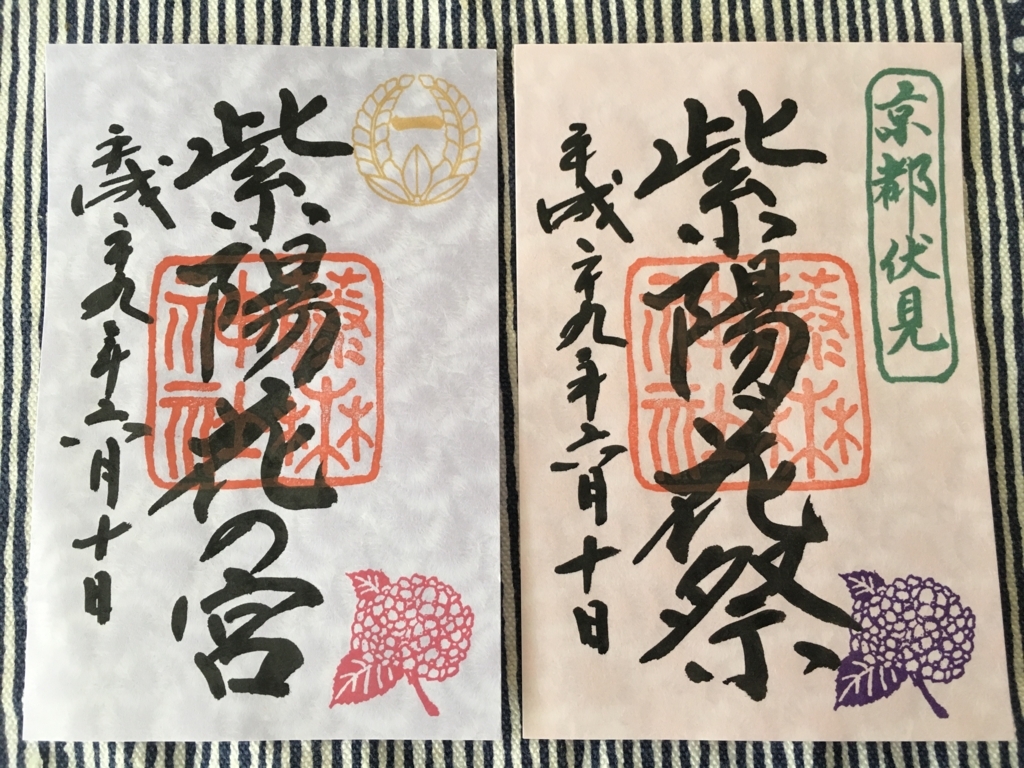 紫陽花の宮
平成二十九年六月十日
藤森神社
一
京都伏見
紫陽花祭
平成二十九年六月十日
藤森神社